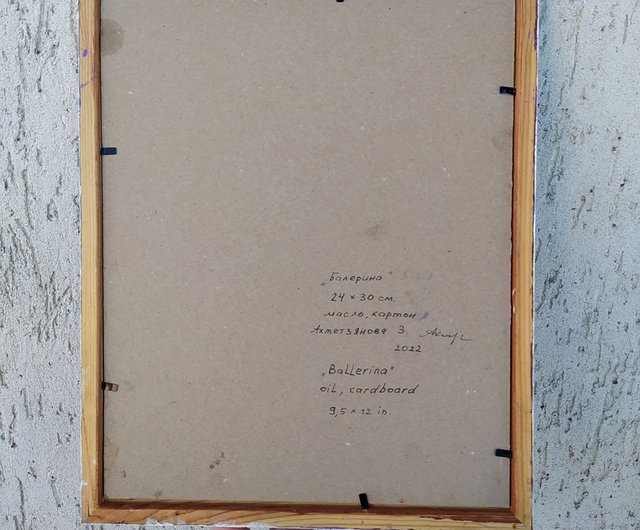 „Балерина"
24 × 30 см.
масло, картон
Ахметзянова З.
2022
„Ballerina"
oil, cardboard
9,5 × 12 in.